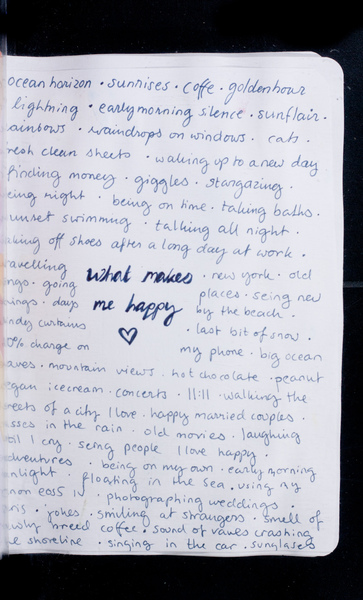 ocean horizon · sunrises · coffe · goldenhour
lightning · earlymorning silence · sunflair ·
ainbows · raindrops on windows · cats ·
resh clean sheets · waking up to a new day
finding money · giggles · stargazing ·
eing right · being on time · taking baths ·
unset swimming · talking all night ·
aking off shoes after a long day at work ·
ravelling what makes · new york · old
ngs · going places · seing new
hings · days me happy by the beach ·
indy curtains · last bit of snow ·
0% charge on my phone · big ocean
aves · mountain views · hot chocolate · peanut
egan icecream · concerts · 11:11 · walking the
reets of a city I love · happy married couples
isses in the rain · old movies · laughing
till I cry · seing people I love happy ·
dventures · being on my own · early morning
nlight · floating in the sea · using my
anon eos5 IV · photographing weddings ·
aris · jokes · smiling at strangers · smell of
ewly brewed coffee · sound of waves crashing
e shoreline · singing in the car · sunglasses